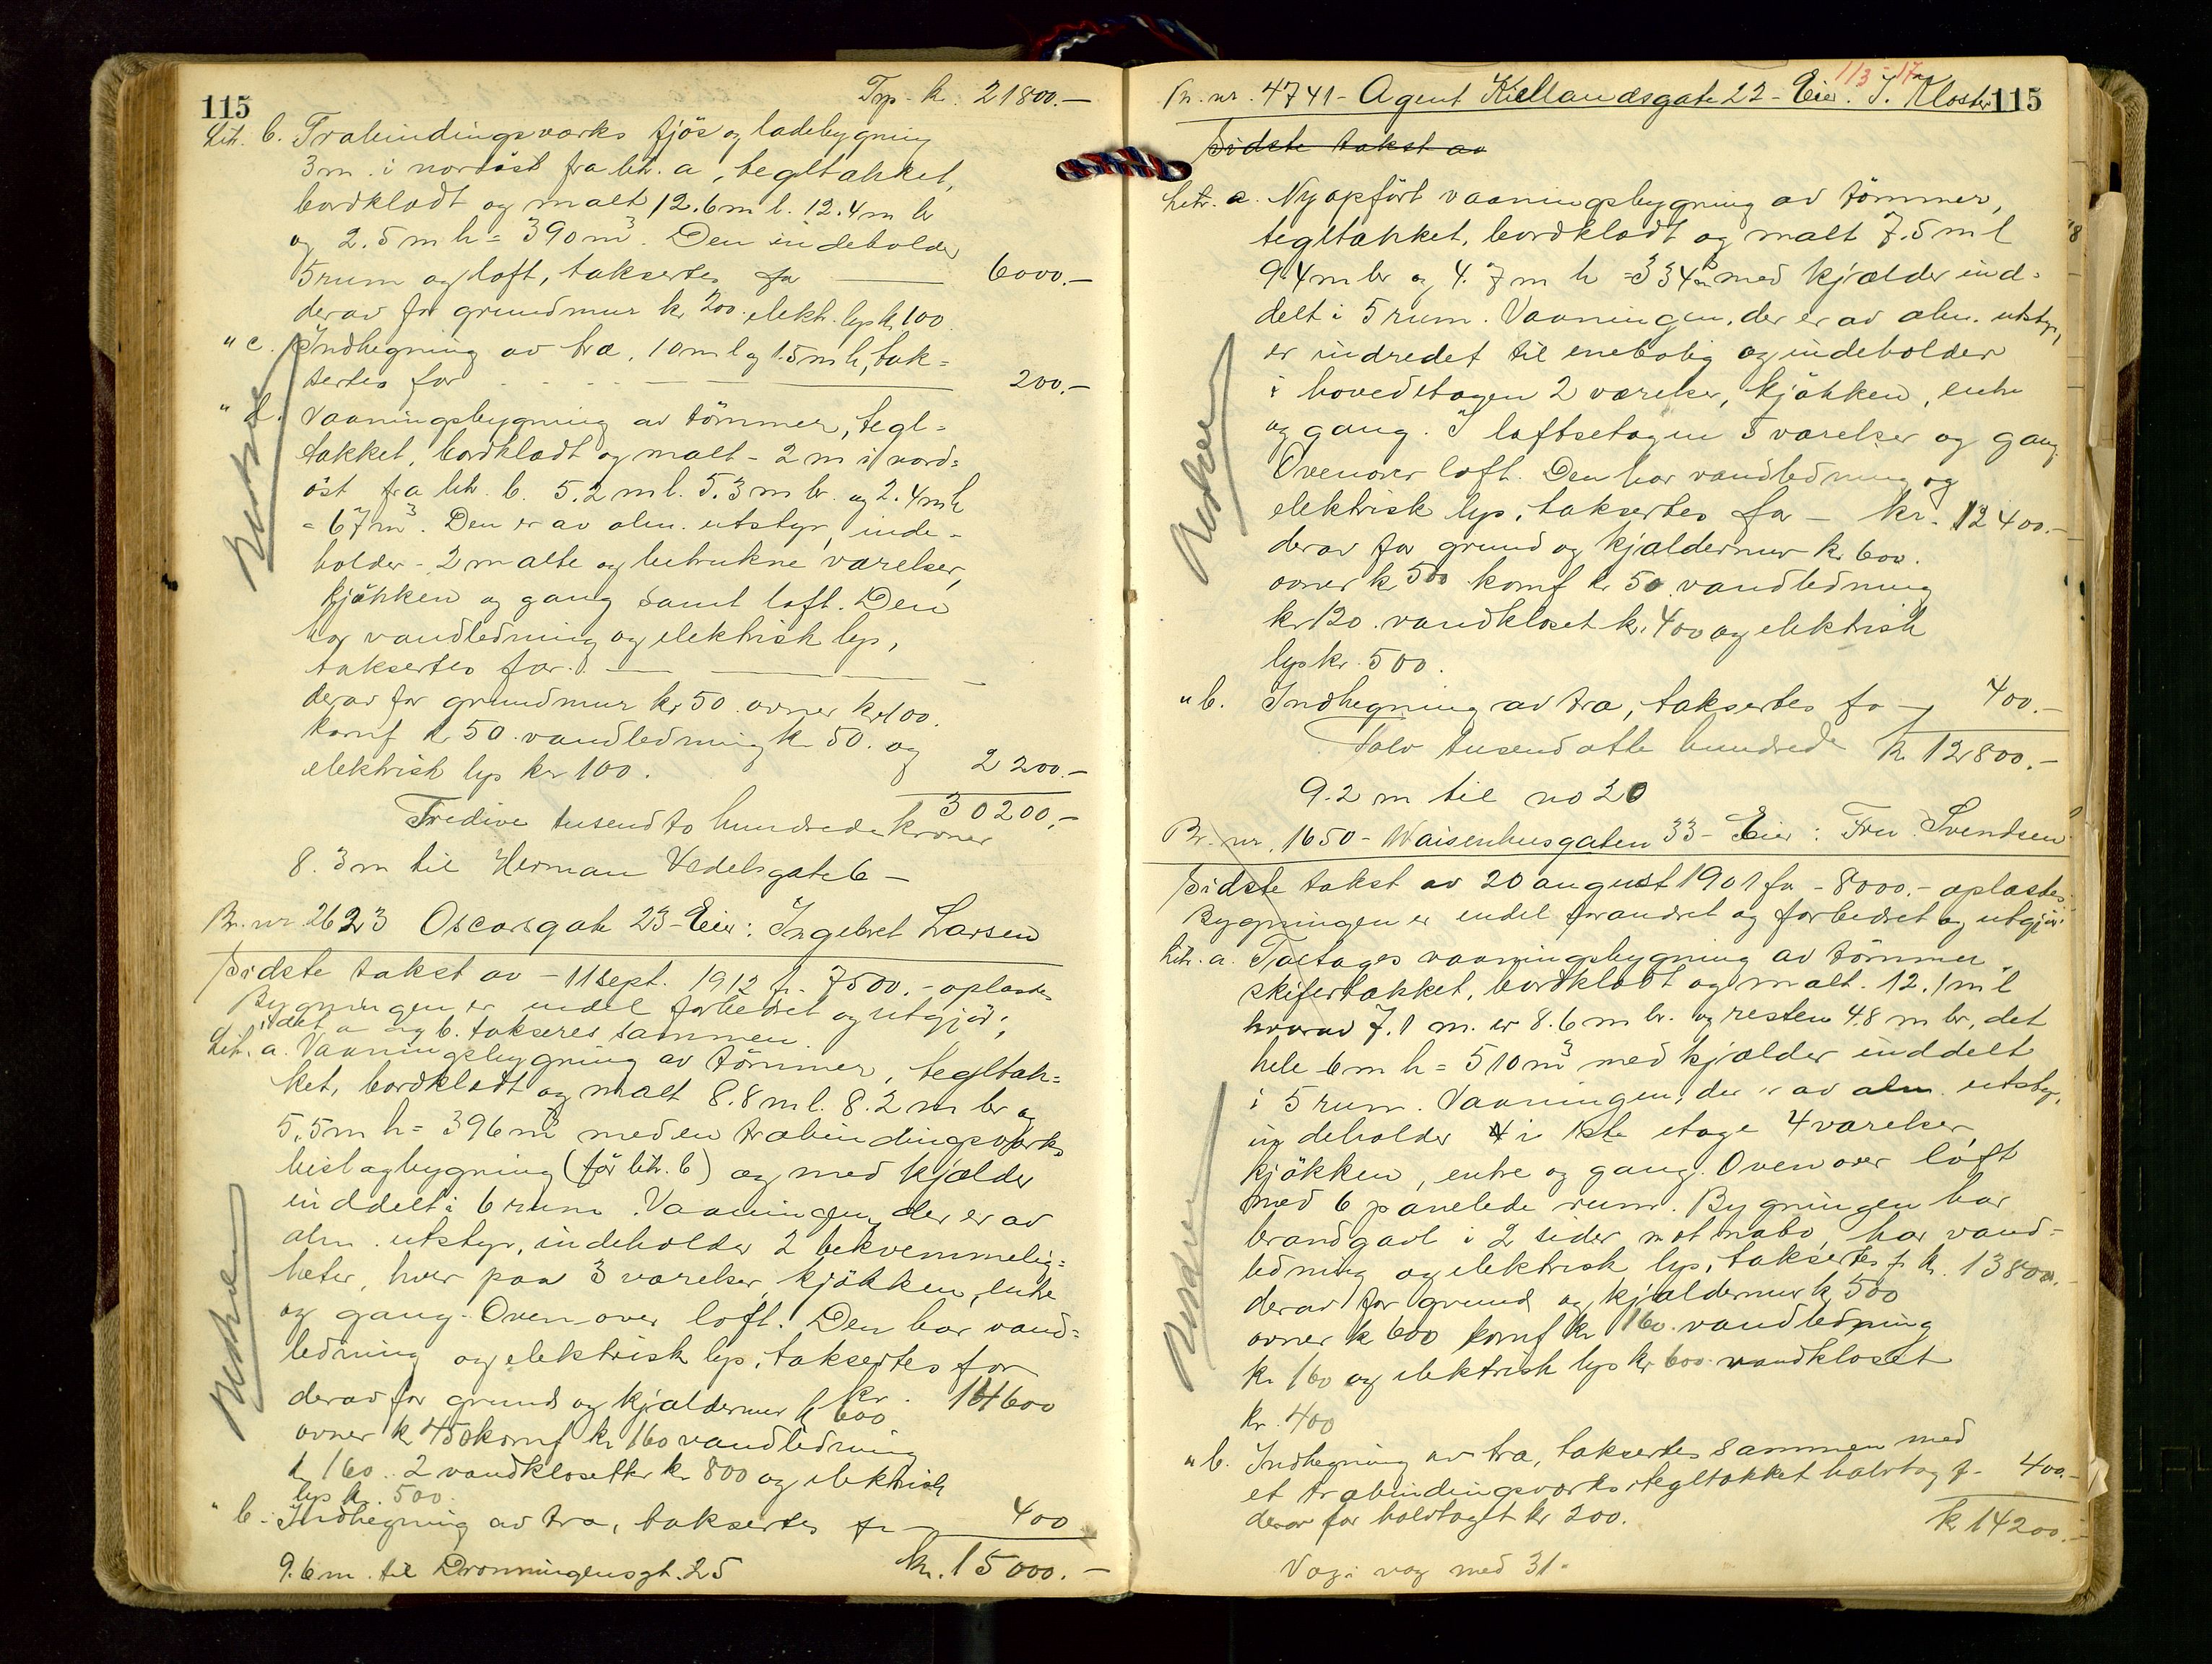 115
Trp. kr. 21800.-
Litr. b. Træbindingsverks fjös og ladebygning
3m. i nordöst fra litr. a, tegltækket,
bordklædt og malt 12.6m l. 12.4m br
og 2.5m h = 390m³. Den indeholder
5 rum og loft, taksertes for 6000.-
derav for grundmur kr. 200. elektr. lys kr. 100
" c. Indhegning av træ, 10m l og 1.5m h, tak=
sertes for 200.-
" d. Vaaningsbygning av tömmer, tegl=
tækket, bordklædt og malt - 2m i nord=
öst fra litr. b. 5.2ml. 5.3m br. og 2.4m h
= 67m³. Den er av alm. utstyr, inde-
holder - 2 malte og betrukne værelser,
kjökken og gang samt loft. Den
har vandledning og elektrisk lys,
taksertes for.
derav for grundmur kr 50 ovner kr 100.
komf kr 50. vandledning kr 50. og
elektrisk lys kr 100. 2200.-
30200.-
Tredive tusend to hundrede kroner
8.3m til Herman Wedelsgate 6 -
Br. nr 2623 Oscarsgate 23 - Eier: Ingebret Larsen
Sidste takst av - 11 sept. 1912 fr. 7500.- oplæstes
Bygningen er endel forbedret og utgjör;
idet a og b. takseres sammen.
Litr. a. Vaaningsbygning av tömmer, tegltæk=
ket, bordklædt og malt 8.8m l. 8.2m br og
5.5m h = 396m³ med en træbindingsverks
bislagbygning (för litr. b) og med kjælder
inddelt i 6 rum. Vaaningen, der er av
alm. utstyr, indeholder 2 bekvemmelig=
heter, hver paa 3 værelser, kjökken, entre
og gang. Oven over loft. Den har vand=
ledning og elektrisk lys, taksertes for
kr. 14600
derav for grund og kjældermur kr 600
ovner kr 450 komf kr 160 vandledning
kr 160.. 2 vandklosetter kr. 800 og elektrisk
lys kr. 500.
" b. Indhegning av træ, taksertes fr - 400
kr. 15000.-
9.6m. til Dronningensgt. 25
113-17
115
Br. nr. 4741 - Agent Kiellandsgate 22 - Eier: J. Kloster
Sidste takst av
Litr. a. Nyopfört vaaningsbygning av tömmer,
tegltækket, bordklædt og malt 7.5m l
9.4m br og 4.7m h = 334m³ med kjælder ind=
delt i 5 rum. Vaaningen, der er av alm. utstyr,
er indredet til enebolig og indeholder
i hovedetagen 2 værelser, kjökken, entre
og gang. I loftsetagen 5 værelser og gang.
Ovenover loft. Den har vandledning og
elektrisk lys, taksertes for - kr. 12400.-
derav for grund og kjældermur kr 600.
ovner kr 500 komf kr 50 vandledning
kr 120. vandkloset kr. 400 og elektrisk
lys kr. 500.
" b. Indhegning av træ, taksertes for - 400.-
Tolv tusend otte hundrede kr 12800.-
9.2m til no 20
Br. nr. 1650 - Waisenhusgaten 33 - Eier: Fru Svendsen
Sidste takst av 20 august 1901 for - 8000.- oplæstes.
Bygningen er endel forandret og forbedret og utgjör:
Litr. a. Toetages vaaningsbygning av tömmer,
skifertækket, bordklædt og malt. 12.1m l
hvorav 7.1m. er 8.6m br. og resten 4.8m br, det
hele 6m h = 510m³ med kjælder inddelt
i 5 rum. Vaaningen, der er av alm utstyr,
indeholder i 1ste etage 4 værelser,
kjökken, entre og gang. Oven over loft
med 6 panelede rum. Bygningen har
brandgavl i 2 sider mot nabo, har vand=
ledning og elektrisk lys, taksertes fr kr. 13800.-
derav for grund og kjældermur kr 500
ovner kr 600 komf kr 160. vandledning
kr 160 og elektrisk lys kr 600 vandkloset
kr. 400
" b. Indhegning av træ, taksertes sammen med
et træbindingsverks tegltækket halvtag fr - 400.-
derav for halvtaget kr 200.
kr 14200.-
Væg i væg med 31.